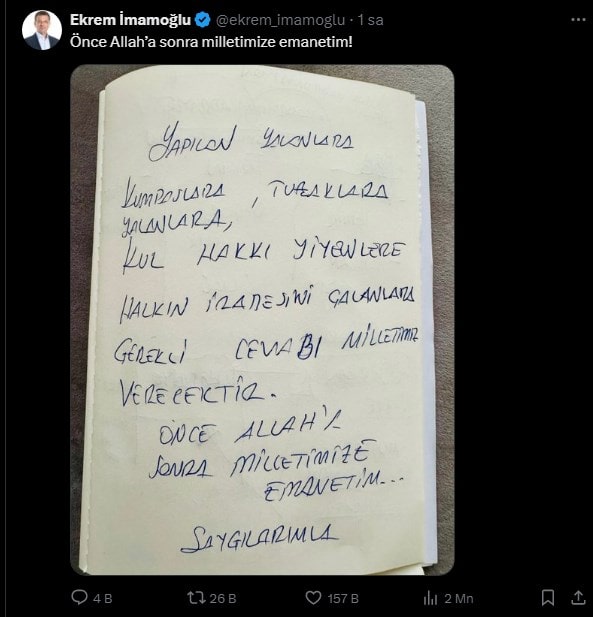 Ekrem İmamoğlu @ekrem_imamoglu · 1 sa
Önce Allah’a sonra milletimize emanetim!
YAPILAN YALANLARA
KUMPASLARA, TUZAKLARA
YALANLARA,
KUL HAKKI YİYENLERE
HALKIN İRADESİNİ ÇALANLARA
GEREKLİ CEVABI MİLLETİMİZ
VERECEKTİR.
ÖNCE ALLAH'A
SONRA MİLLETİMİZE
EMANETİM...
SAYGILARIMLA
4 B 26 B 157 B 2 Mn